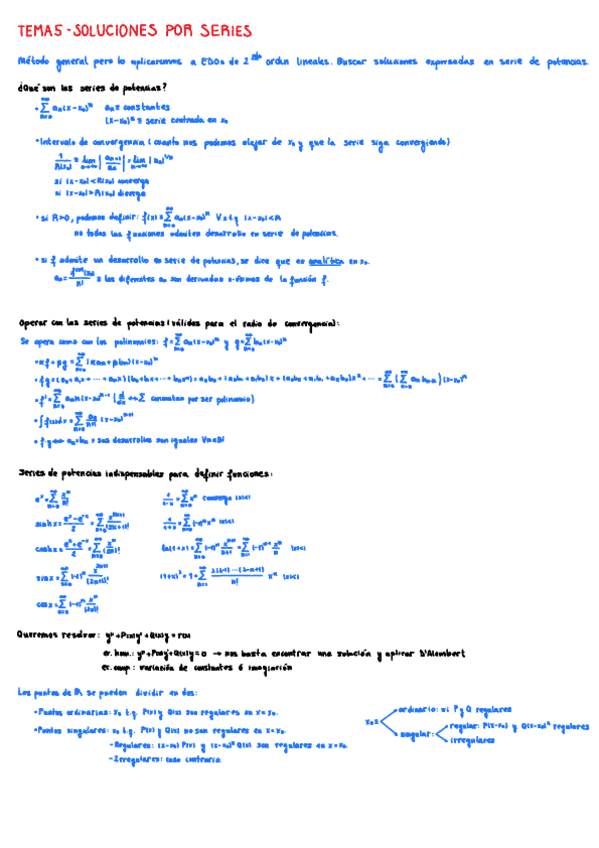 TEMA5 - SOLUCIONES POR SERIES
Método general pero lo aplicaremos a EDOs de 2do orden lineales. Buscar soluciones expresadas en serie de potencias.
¿Qué son las series de potencias?
• ∑ aₙ(x-x₀)ⁿ   aₙ ≡ constantes
(x-x₀)ⁿ ≡ serie centrada en x₀
• Intervalo de convergencia (cuanto nos podemos alejar de x₀ y que la serie siga convergiendo)
1/R(x₀) = lim |aₙ₊₁/aₙ| = lim |aₙ|^(1/n)
si |x-x₀| < R(x₀) converge
si |x-x₀| > R(x₀) diverge
• si R>0, podemos definir: f(x) = ∑ aₙ(x-x₀)ⁿ ∀x t.q |x-x₀|<R
no todas las funciones admiten desarrollo en serie de potencias.
• si f admite un desarrollo en serie de potencias, se dice que es analítica en x₀.
aₙ = f⁽ⁿ⁾(x₀)/n! ≡ los diferentes aₙ son derivadas n-ésimas de la función f.
Operar con las series de potencias (válidas para el radio de convergencia):
Se opera como con los polinomios: f = ∑ aₙ(x-x₀)ⁿ y g = ∑ bₙ(x-x₀)ⁿ
• αf + βg = ∑ (αaₙ + βbₙ)(x-x₀)ⁿ
• f·g = (a₀ + a₁x + ··· + aₙxⁿ)(b₀ + b₁x + ··· + bₙxⁿ) = a₀b₀ + (a₀b₁ + a₁b₀)x + (a₀b₂ + a₁b₁ + a₂b₀)x² + ···
• f' = ∑ aₙn(x-x₀)ⁿ⁻¹ (d/dx ↔ ∑ conmutan por ser polinomio)
• ∫f(x)dx = ∑ aₙ/(n+1) (x-x₀)ⁿ⁺¹
• f = g ↔ aₙ = bₙ ≡ sus desarrollos son iguales ∀n∈ℕ
Series de potencias indispensables para definir funciones:
eˣ = ∑ xⁿ/n!   1/(1-x) = ∑ xⁿ converge |x|<1
sinh x = (eˣ - e⁻ˣ)/2 = ∑ x²ⁿ⁺¹/(2n+1)!   1/(1+x) = ∑ (-1)ⁿxⁿ |x|<1
cosh x = (eˣ + e⁻ˣ)/2 = ∑ x²ⁿ/(2n)!   ln(1+x) = ∑ (-1)ⁿ xⁿ⁺¹/(n+1) = ∑ (-1)ⁿ⁺¹ xⁿ/n |x|<1
sin x = ∑ (-1)ⁿ x²ⁿ⁺¹/(2n+1)!   (1+x)^λ = 1 + ∑ λ(λ-1)···(λ-n+1)/n! xⁿ |x|<1
cos x = ∑ (-1)ⁿ x²ⁿ/(2n)!
Queremos resolver: y'' + P(x)y' + Q(x)y = r(x)
ec. hom.: y'' + P(x)y' + Q(x)y = 0 → nos basta encontrar una solución y aplicar D'Alembert
ec. comp.: variación de constantes ó imaginación
Los puntos de ℝ se pueden dividir en dos:
• Puntos ordinarios: x₀ t.q. P(x) y Q(x) son regulares en x=x₀.
• Puntos singulares: x₀ t.q P(x) y Q(x) no son regulares en x=x₀.
- Regulares: (x-x₀)P(x) y (x-x₀)²Q(x) son regulares en x=x₀
- Irregulares: caso contrario
x₀ =
ordinario: si P y Q regulares
singular:
regular: P(x-x₀) y Q(x-x₀)² regulares
irregulares